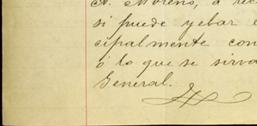 A. Moreno, á rec
si puede yebar e
cipalmente con
ó lo que se sirva
General.